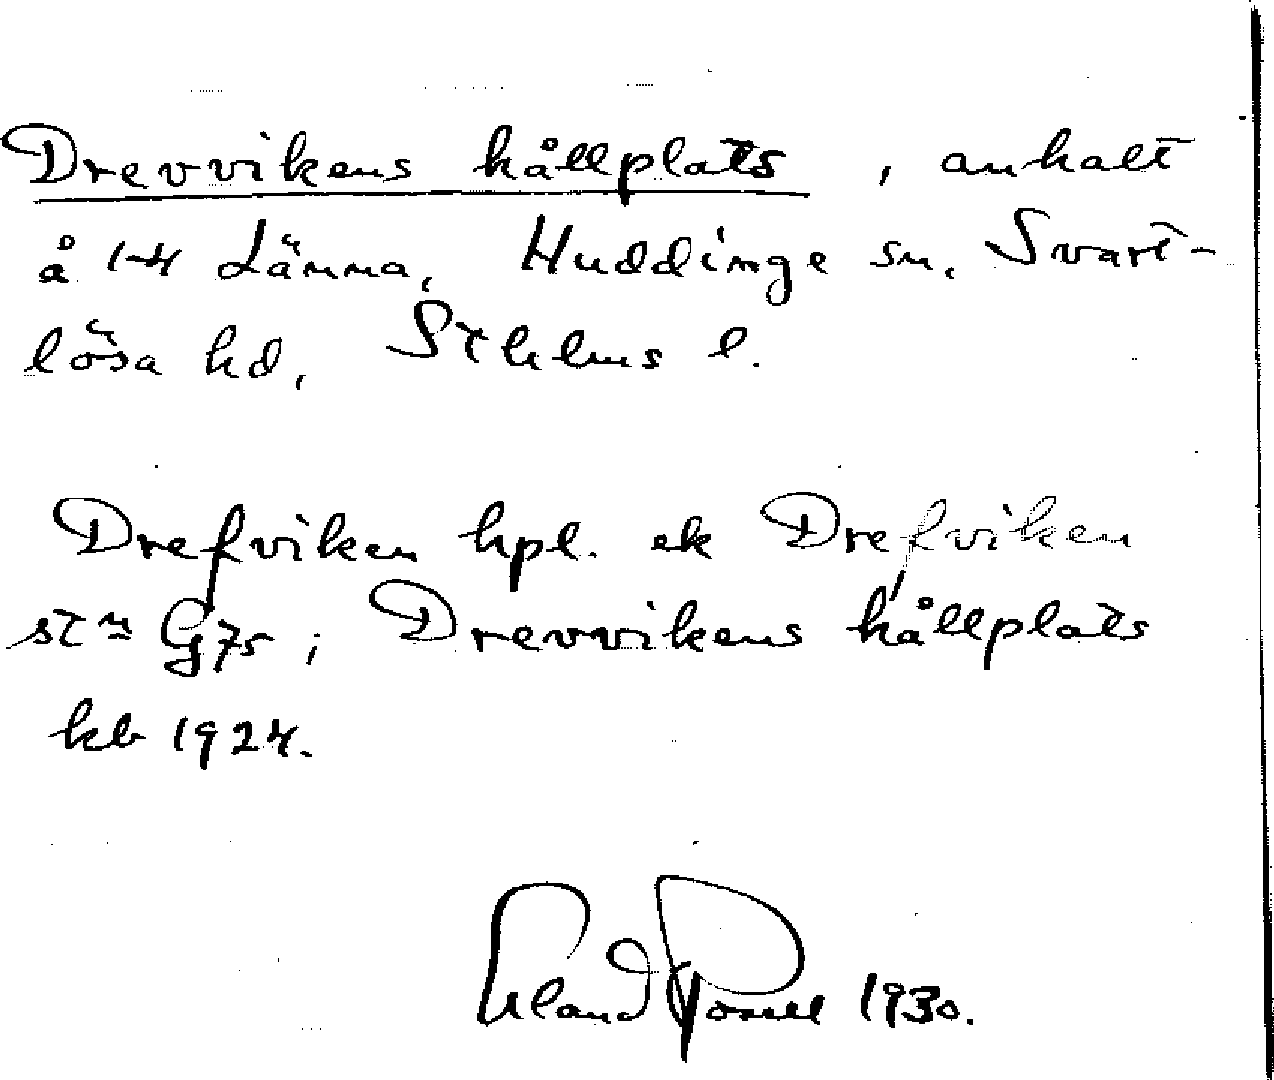 Drevvikens hållplats, anhalt
å 1-4 Länna, Huddinge sn, Svart-
lösa hd, Sthlms l.
Drefviken hpl. ek Drefviken
stn G75; Drevvikens hållplats
kb 1924.
Erland Rosell 1930.